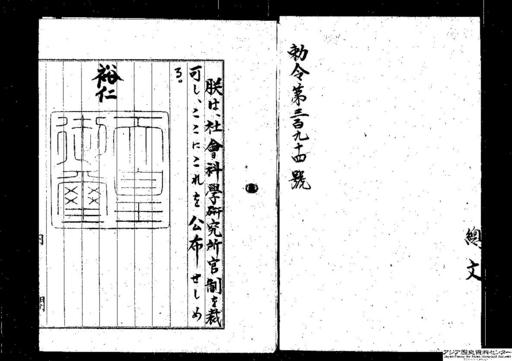 勅令第三百九十四號
總
文
朕は、社會科學研究所官制を裁
可し、ここにこれを公布せしめ
る。
裕仁
天皇
御璽
アジア歴史資料センター